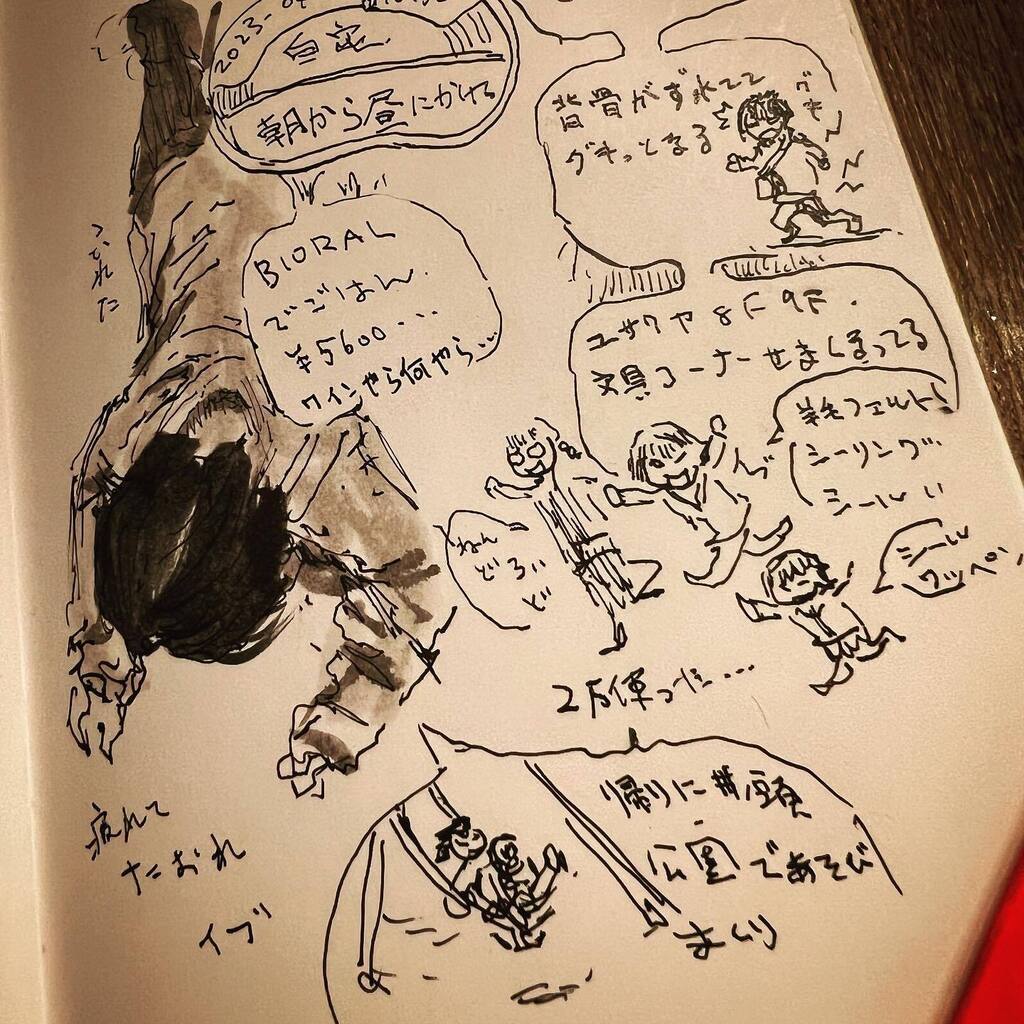 2023-04
自宅
朝から昼にかける
背骨がずれてて
グキっとなる
グキ
つぶれた
BIORAL
でごはん
¥5600...
ワインやら何やら...
ユザワヤ 8F 9F.
文具コーナーせまくなってる
羊毛フェルト!
シーリング
シールい
ねん
どろい
ど
シール
ワッペン
2万使った....
帰りに井の頭
公園であそび
まくり
疲れて
たおれ
イブ